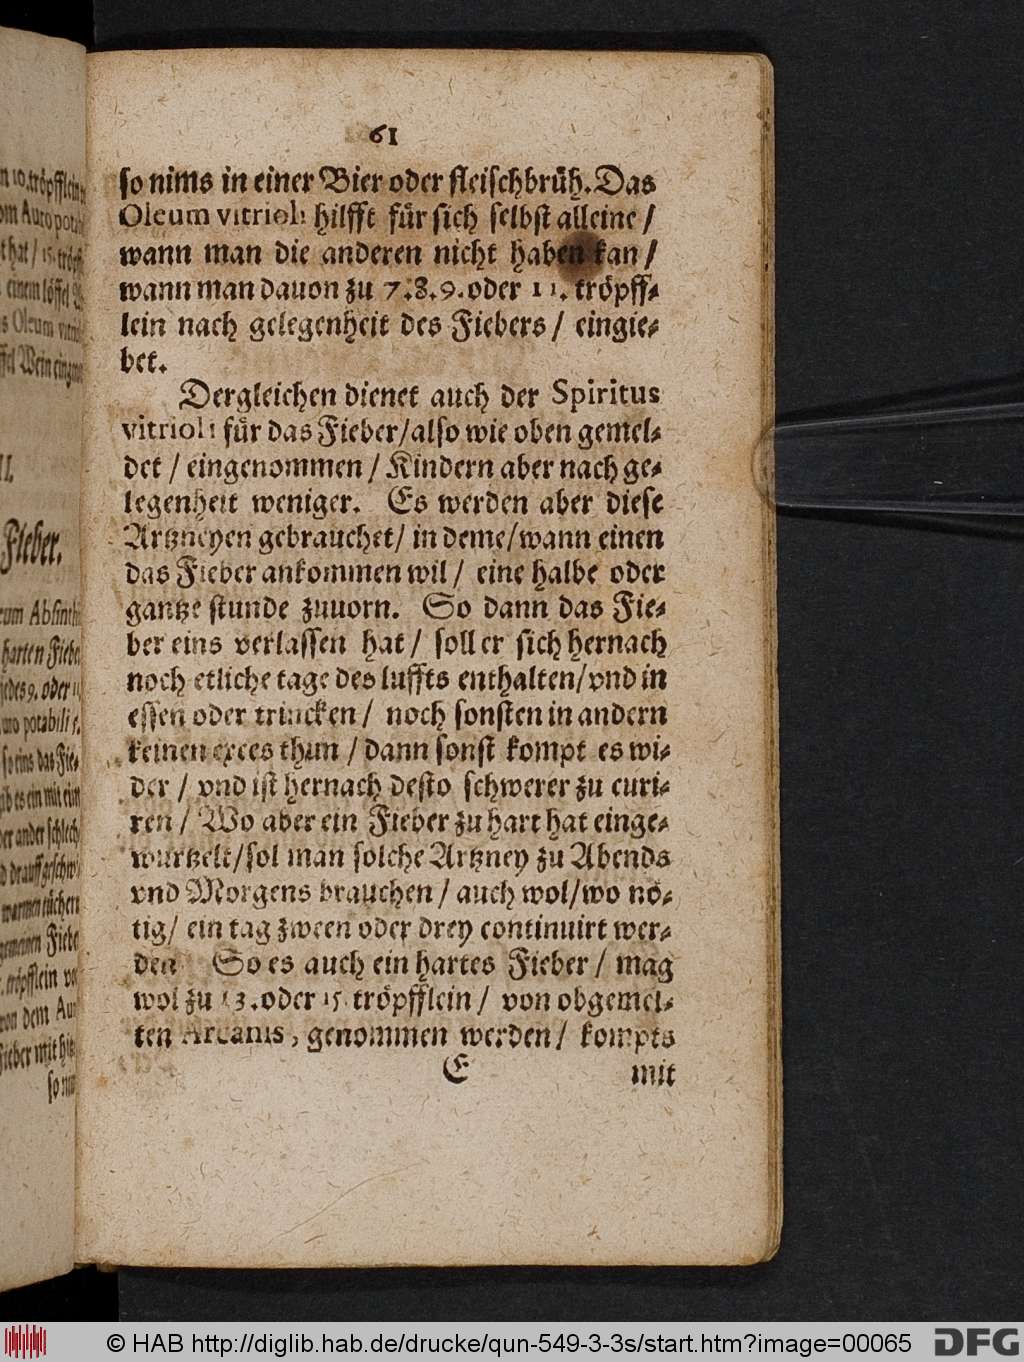 61
so nims in einer Bier oder fleischbrüh. Das
Oleum vitrioli hilfft für sich selbst alleine /
wann man die anderen nicht haben kan /
wann man dauon zu 7. 8. 9. oder 11. tröpff-
lein nach gelegenheit des Fiebers / eingie-
bet.
Dergleichen dienet auch der Spiritus
vitrioli für das Fieber / also wie oben gemel-
det / eingenommen / Kindern aber nach ge-
legenheit weniger. Es werden aber diese
Artzneyen gebrauchet / in deme / wann einen
das Fieber ankommen wil / eine halbe oder
gantze stunde zuuorn. So dann das Fie-
ber eins verlassen hat / soll er sich hernach
noch etliche tage des luffts enthalten / vnd in
essen oder trincken / noch sonsten in andern
keinen exces thun / dann sonst kompt es wi-
der / vnd ist hernach desto schwerer zu curi-
ren / Wo aber ein Fieber zu hart hat einge-
wurtzelt / sol man solche Artzney zu Abends
vnd Morgens brauchen / auch wol / wo nö-
tig / ein tag zween oder drey continuirt wer-
den So es auch ein hartes Fieber / mag
wol zu 13. oder 15 tröpfflein / von obgemel-
ten Arcanis, genommen werden / kompts
E mit
Fieber.
© HAB http://diglib.hab.de/drucke/qun-549-3-3s/start.htm?image=00065
DFG